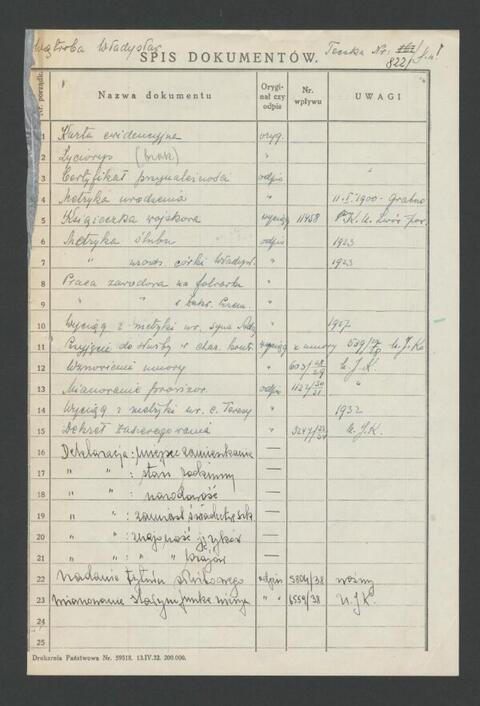 Wątroba Władysław
SPIS DOKUMENTÓW.
Teczka Nr: 822/
Nr. porządk.
Nazwa dokumentu
Oryginał czy odpis
Nr. wpływu
UWAGI
1 Karta ewidencyjna oryg.
2 Życiorys (brak) "
3 Certyfikat przynależności odpis "
4 Metryka urodzenia " 11.I.1900 -
5 Książeczka wojskowa wyciąg 11458 P.K.U. Lwów
6 Metryka ślubu odpis 1923
7 " urodz. córki Władysł. " 1923
8 Praca zawodowa na folwarku "
9 " " "
10 Wyciąg z metryki ur. syna " 1927
11 Przyjęcie do służby w char. kontr. wyciąg z umowy U.J.K.
12 Wznowienie umowy " 603/28/29 U.J.K.
13 Mianowanie prowizor. odpis 1127/30/31 "
14 Wyciąg z metryki ur. c. Teresy " 1932
15 Dekret zaszeregowania " 3247/ U.J.K.
16 Deklaracja: miejsce zamieszkania —
17 " " : stan rodzinny —
18 " " : narodowość —
19 " " : zamiast świadectw szk. —
20 " " : znajomość języków —
21 " " : " " krajów —
22 Nadanie tytułu służbowego odpis 5804/38 woźny
23 Mianowanie starszym funkc. niższ. " 6559/38 U.J.K.
24
25
Drukarnia Państwowa Nr. 59518. 13.IV.32. 200.000.